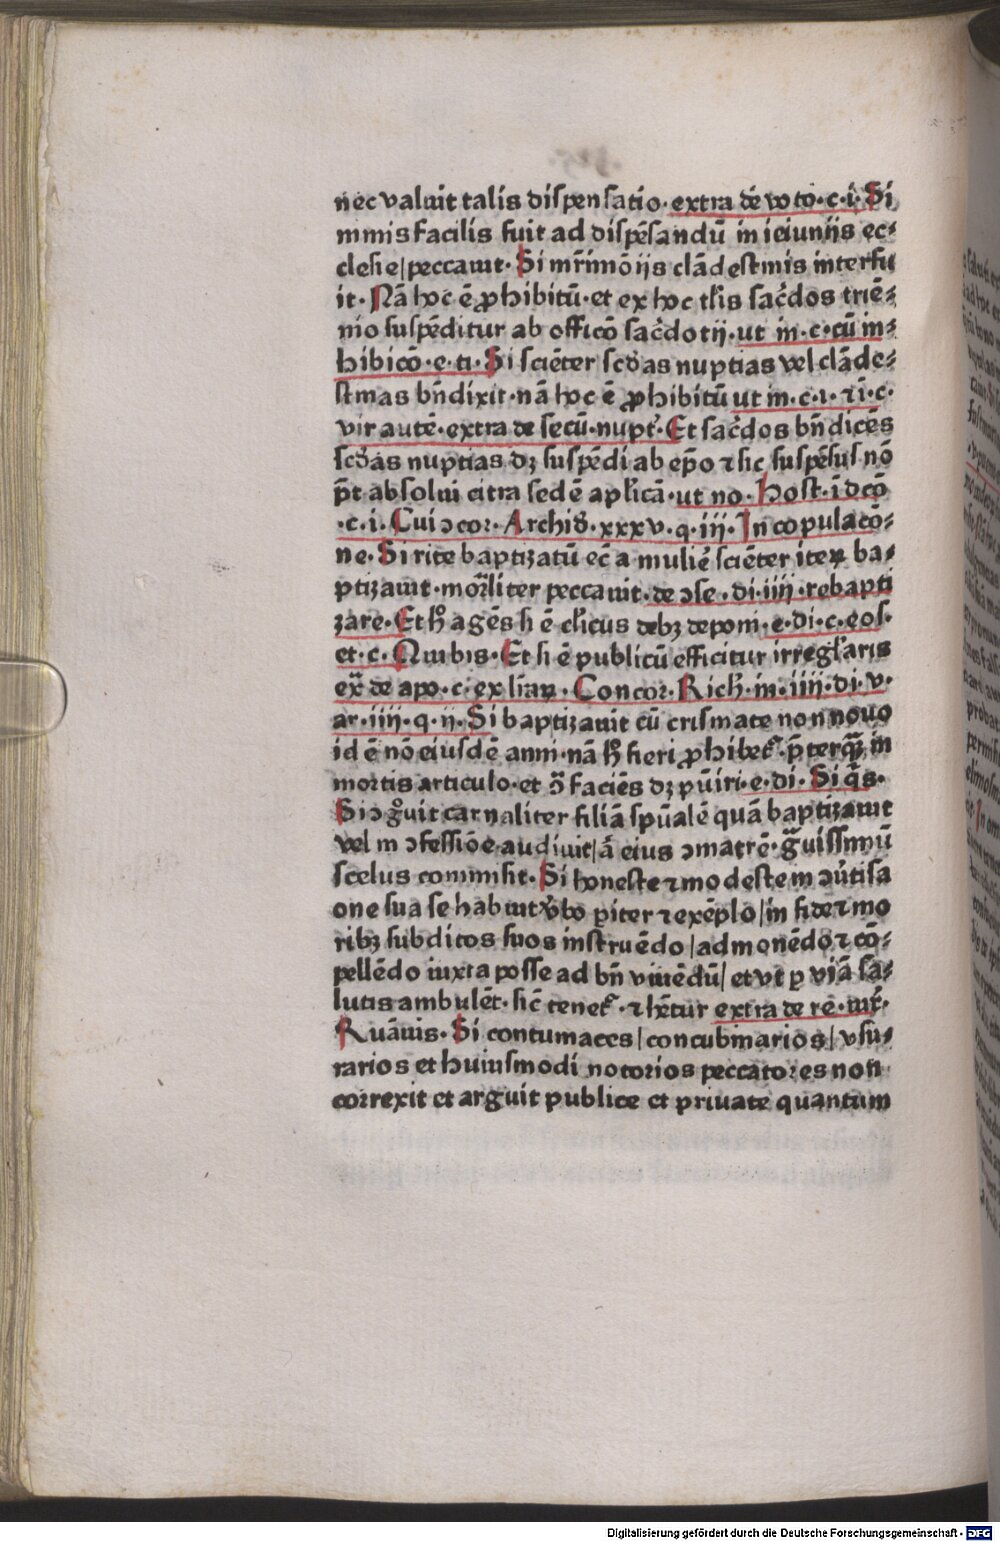 nec valuit talis dispensatio. extra de voto. c. i. Si
nimis facilis fuit ad dispēsandū in ieiuniis ec⸗
clesie/peccauit. Si mr̄imōiis clādestinis interfu
it. Nā hoc ē ꝓhibitū. et ex hoc tl̄is sac̄dos triē⸗
nio suspēditur ab officō sac̄dotij. ut in. c. cū in⸗
hibicō. e. ti. Si sciēter scd̄as nuptias vel clāde⸗
stinas bn̄dixit. nā hoc ē ꝓhibitū ut in. c. i. ⁊ ī. c.
vir autē. extra de secū. nupt̄. Et sac̄dos bn̄dicēs
scd̄as nuptias dꝫ suspēdi ab ep̄o ⁊ sic suspēsus nō
pt̄ absolui citra sedē aplicā. ut no. Host. ī dcō
.c. i. Cui ↄcor. Archid̄. xxxv. q. iii. In copulacō⸗
ne. Si rite baptizatū ec̄ a mulie͛ sciēter iteꝝ ba⸗
ptizauit. mor̄liter peccauit. de ↄse. di. iiii. rebapti
zare. Et h̄ agēs si ē cl̄icus debꝫ deponi. e. di. c. eos.
et. c. Quibis. Et si ē publicū efficitur irregl̄aris
ex̄ de apo. c. ex l̄iaꝝ. Concor. Rich̄. in. iiii. di. v.
ar. iiii. q. ii. Si baptizauit cū crismate non nouo
id ē nō eiusdē anni. nā h̄ fieri ꝓhibet᷑. p̄terqꝫ in
mortis articulo. et ↄ̄ faciēs dꝫ pūiri. e. di. Si q̄s.
Si ↄgͦuit carnaliter filiā spūalē quā baptizauit
vel in ↄfessiōe audiuit/ā eius ↄmatrē. gͣuissimū
scelus commisit. Si honeste ⁊ modeste in ↄūtisa
one sua se habuit v̄bo piter ⁊ exēplo/in fide ⁊ mo
ribꝫ subditos suos instruēdo/admonēdo ⁊ cō⸗
pellēdo iuxta posse ad bn̄ viuēdū/et vt ꝑ viā sa⸗
lutis ambulēt. sic̄ tenet᷑. ⁊ hētur extra de re. iur̄.
Ruāuis. Si contumaces/concubinarios/vsu⸗
rarios et huiusmodi notorios peccatores non
correxit et arguit publice et priuate quantum
Digitalisierung gefördert durch die Deutsche Forschungsgemeinschaft - DFG